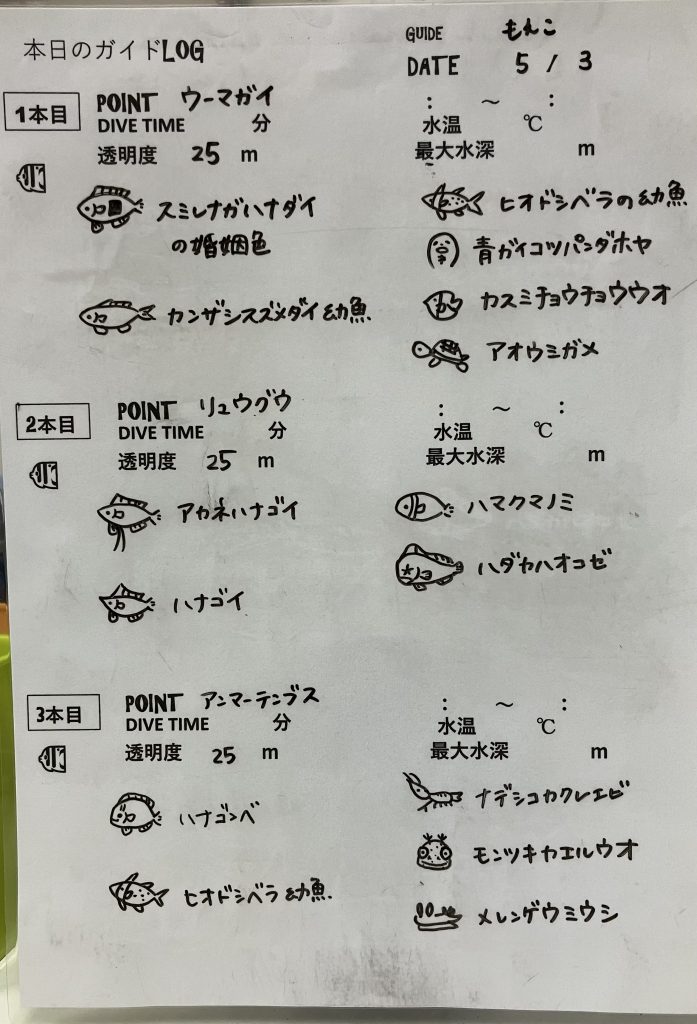 本日のガイドLOG
GUIDE もんこ
DATE 5 / 3
1本目
POINT ウーマガイ
: ～ :
DIVE TIME 分
水温 ℃
透明度 25 m
最大水深 m
スミレナガハナダイ
の婚姻色
カンザシスズメダイ幼魚
ヒオドシベラの幼魚
青ガイコツパンダホヤ
カスミチョウチョウウオ
アオウミガメ
2本目
POINT リュウグウ
: ～ :
DIVE TIME 分
水温 ℃
透明度 25 m
最大水深 m
アカネハナゴイ
ハナゴイ
ハマクマノミ
ハダカハオコゼ
3本目
POINT アンマーテンブス
: ～ :
DIVE TIME 分
水温 ℃
透明度 25 m
最大水深 m
ハナゴンベ
ヒオドシベラ幼魚
ナデシコカクレエビ
モンツキカエルウオ
メレンゲウミウシ